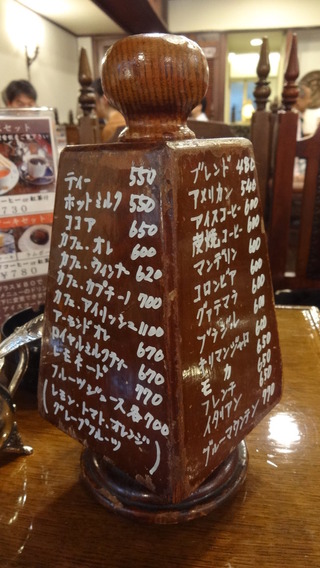 ティー 550
ホットミルク 550
ココア 650
カフェ・オレ 600
カフェ・ウィンナ 620
カフェ・カプチーノ 700
カフェ・アイリッシュ 1100
アーモンドオレ 670
ロイヤルミルクティ 670
レモネード 770
フルーツジュース 各700
(レモン・トマト・オレンジ
グレープフルーツ)
ブレンド 480
アメリカン
アイスコーヒー 600
炭焼コーヒー 600
マンデリン
コロンビア 600
グァテマラ 600
ブラジル 600
キリマンジャロ
モカ 650
フレンチ 650
イタリアン
ブルーマウンテン
¥730
¥780